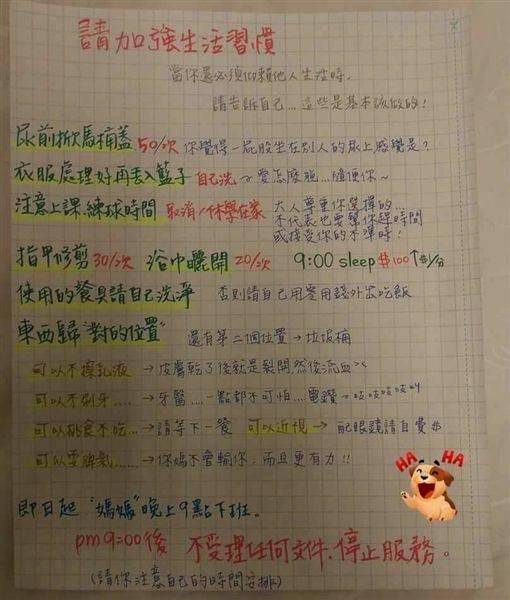 請加強生活習慣
當你還必須仰賴他人生活時,
請告訴自己...這些是基本該做的!
尿前掀馬桶蓋 50/次 你覺得一屁股坐在別人的尿上感覺是?
衣服處理好再丟入籃子 自己洗~愛怎麼脫...隨便你~
注意上課.練球時間 取消/休學在家 大人尊重你選擇的...
不代表也要幫你趕時間
或接受你的不準時!
指甲修剪 30/次 浴巾曬開 20/次 9:00 sleep $100↑$/分
使用的餐具請自己洗淨 否則請自己用零用錢外出吃飯
東西歸"對的位置" 還有第二個位置→垃圾桶
可以不擦乳液 → 皮膚乾了後就是裂開然後流血><
可以不刷牙..... → 牙醫....一點都不可怕....電鑽~吱吱吱吱叫
可以挑食不吃... → 請等下一餐 可以近視 → 配眼鏡請自費$
可以耍脾氣...... → 你媽不會輸你,而且更有力!!
HA HA
即日起"媽媽"晚上9點下班。
pm9:00後 不受理任何文件.停止服務。
(請你注意自己的時間安排)